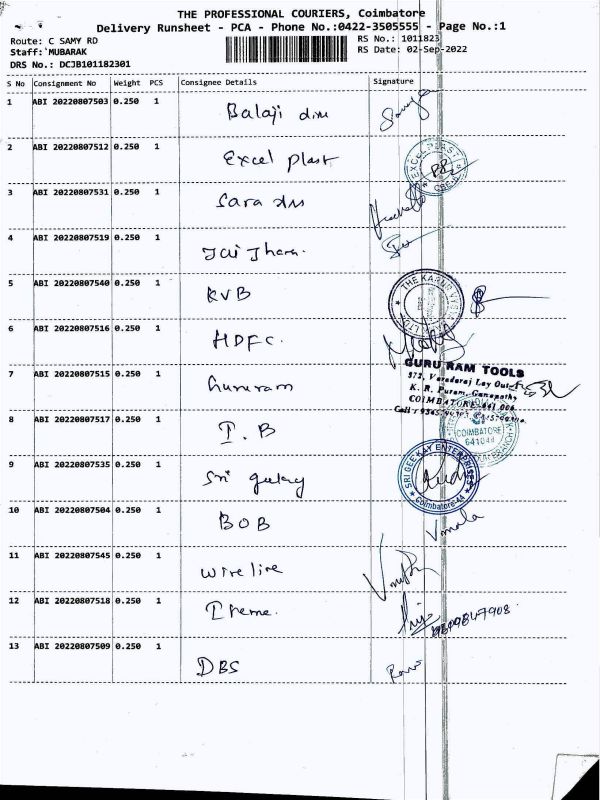 THE PROFESSIONAL COURIERS, Coimbatore
Delivery Runsheet - PCA - Phone No.:0422-3505555 - Page No.:1
Route: C SAMY RD
RS No.: 1011823
Staff: MUBARAK
RS Date: 02-Sep-2022
DRS No.: DCJB101182301
S No Consignment No Weight PCS Consignee Details Signature
1 ABI 20220807503 0.250 1 Balaji
2 ABI 20220807512 0.250 1 Excel Plast
EXCEL PLAST
3 ABI 20220807531 0.250 1 Sara
4 ABI 20220807519 0.250 1 Jai
5 ABI 20220807540 0.250 1 KVB
THE KARUR VYSYA
6 ABI 20220807516 0.250 1 HDFC.
GURU RAM TOOLS
572, Varadaraj Lay Out
7 ABI 20220807515 0.250 1 Gururam
K. R. Puram, Ganapathy
COIMBATORE-641 006
8 ABI 20220807517 0.250 1 I.B
COIMBATORE
641044
9 ABI 20220807535 0.250 1 Sri
SRI GEE KAY ENTERPRISES
Coimbatore-44
10 ABI 20220807504 0.250 1 BOB Vmala
11 ABI 20220807545 0.250 1 Wireline
12 ABI 20220807518 0.250 1
13 ABI 20220807509 0.250 1 DBS